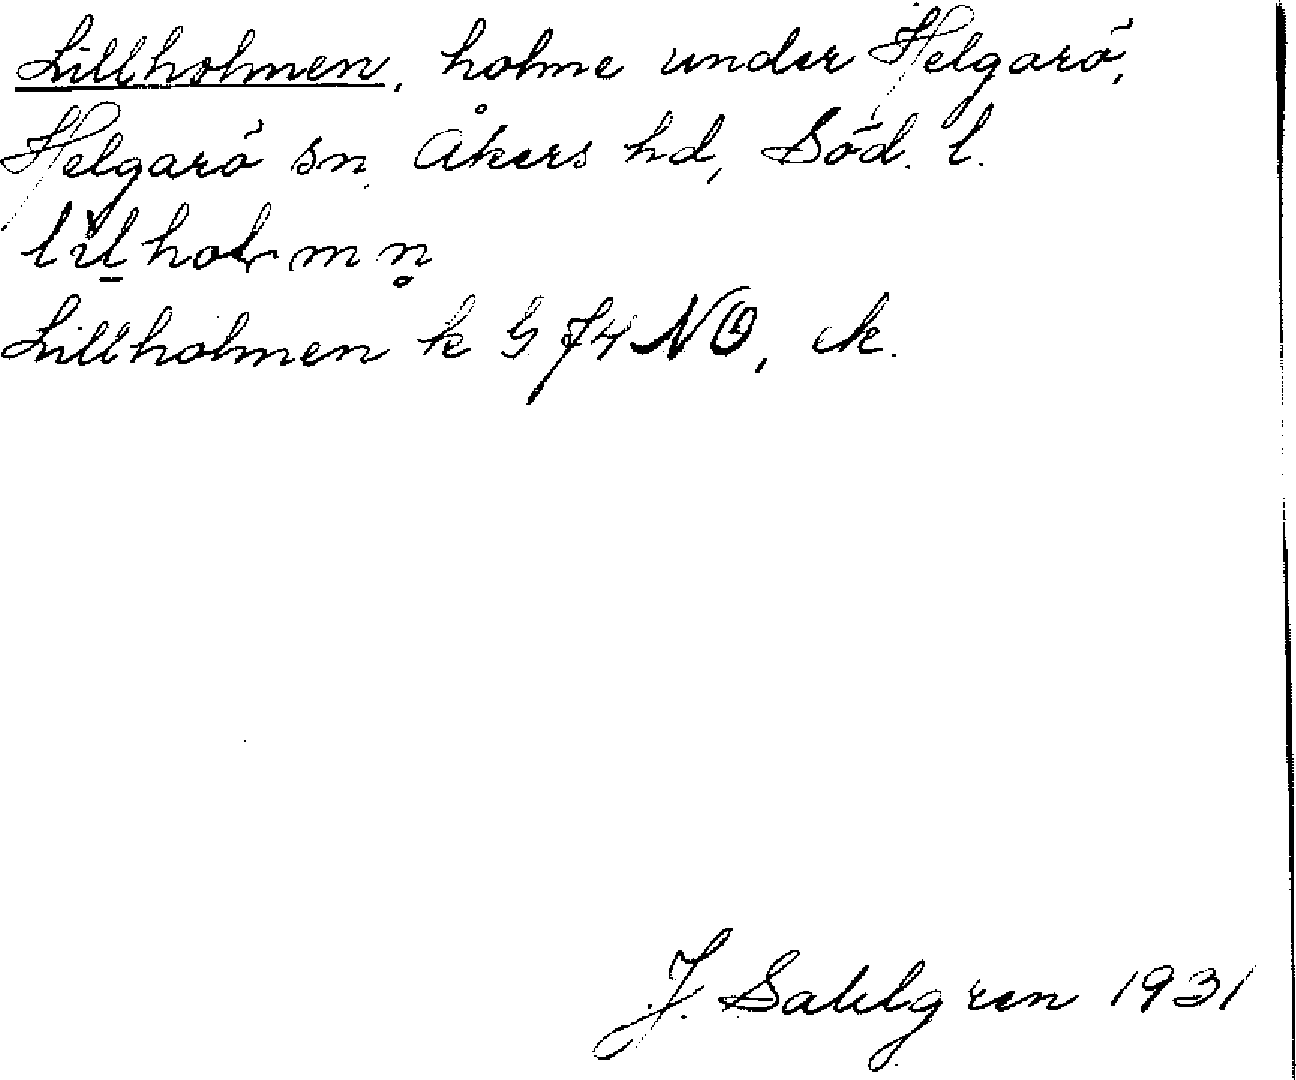 Lillholmen, holme under Helgarö,
Helgarö sn. Åkers hd, Söd. l.
Lillholmen k G 74 NO, ek.
J. Sahlgren 1931